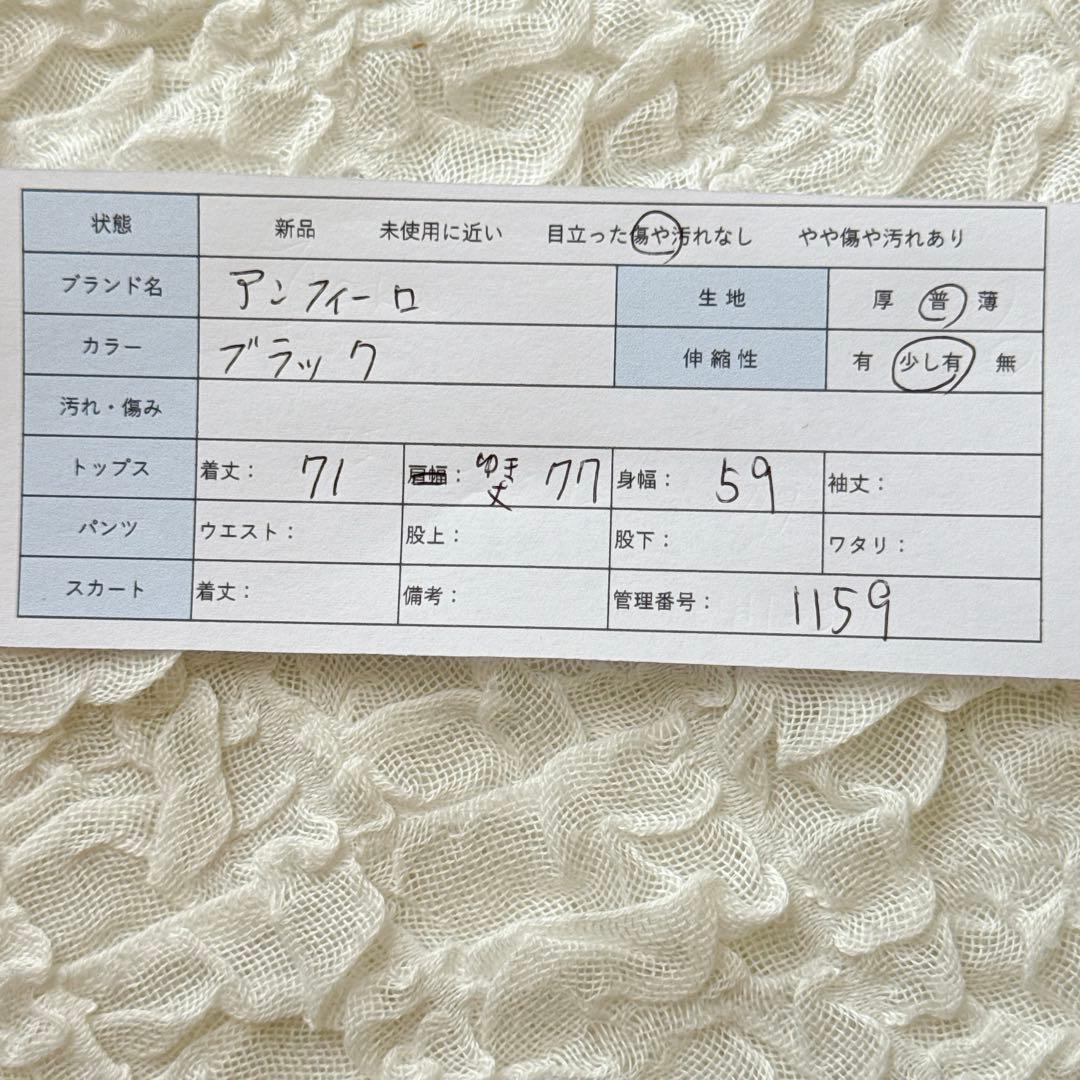 状態 新品 未使用に近い 目立った傷や汚れなし やや傷や汚れあり
ブランド名 アンフィーロ 生地 厚 普 薄
カラー ブラック 伸縮性 有 少し有 無
汚れ・傷み
トップス 着丈: 71 肩幅: ゆき丈 77 身幅: 59 袖丈:
パンツ ウエスト: 股上: 股下: ワタリ:
スカート 着丈: 備考: 管理番号: 1159